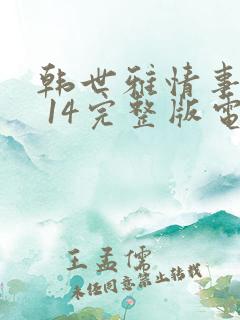 韩世雅情事
14完整版电
王孟儒
未经同意禁止转载